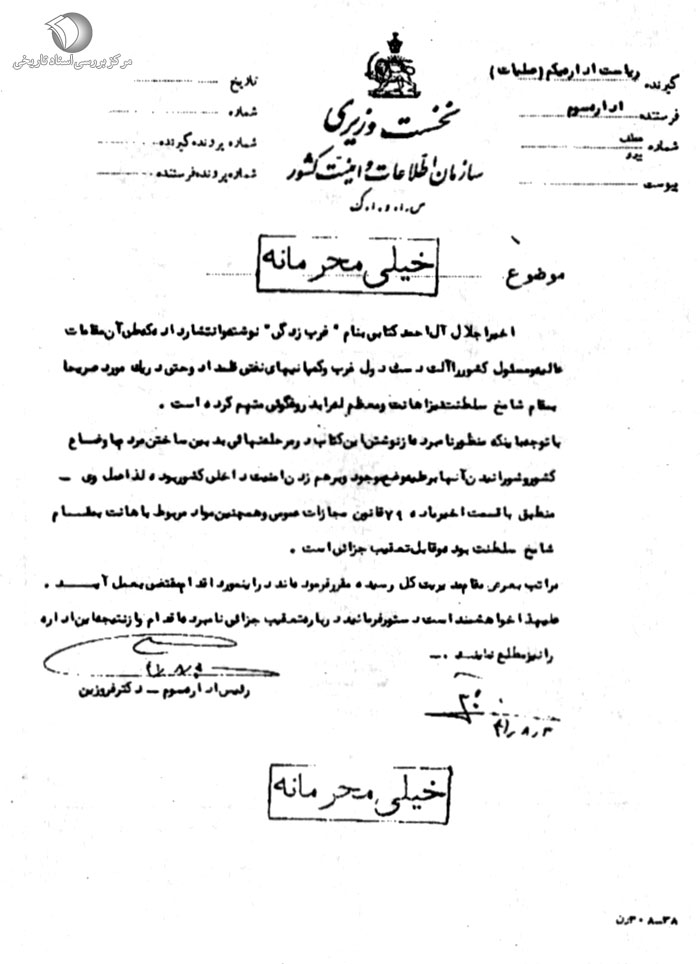 مرکز بررسی اسناد تاریخی
نخست وزیری
سازمان اطلاعات و امنیت کشور
س.ا.و.ا.ک
گیرنده ریاست اداره یکم (عملیات)
فرستنده اداره سوم
شماره
پیوست
تاریخ
شماره
شماره پرونده گیرنده
شماره پرونده فرستنده
موضوع
خیلی محرمانه
اخیرا جلال آل احمد کتابی بنام "غرب زدگی" نوشته و انتشار داده که طی آن مقامات
عالیه و مسئول کشور را آلت دست دول غرب و کمپانیهای نفتی قلمداد و حتی در یک مورد صریحا
بمقام شامخ سلطنت نیز اهانت و معظم له را بدروغگوئی متهم کرده است .
با توجه باینکه منظور نامبرده از نوشتن این کتاب در مرحله نهائی بدبین ساختن مردم باوضاع
کشور و شورانیدن آنها بر علیه وضع موجود و برهم زدن امنیت داخلی کشور بوده لذا عمل وی -
منطبق با قسمت اخیر ماده ۷۹ قانون مجازات عمومی و همچنین مواد مربوط باهانت بمقام
شامخ سلطنت بوده و قابل تعقیب جزائی است .
مراتب بعرض مقام مدیریت کل رسیده مقرر فرموده اند در اینمورد اقدام مقتضی بعمل آید .
علیهذا خواهشمند است دستور فرمائید درباره تعقیب جزائی نامبرده اقدام و از نتیجه این اداره
را نیز مطلع نمایند .-
رئیس اداره سوم - دکتر فروزین
۴۱٫۸٫۳
خیلی محرمانه